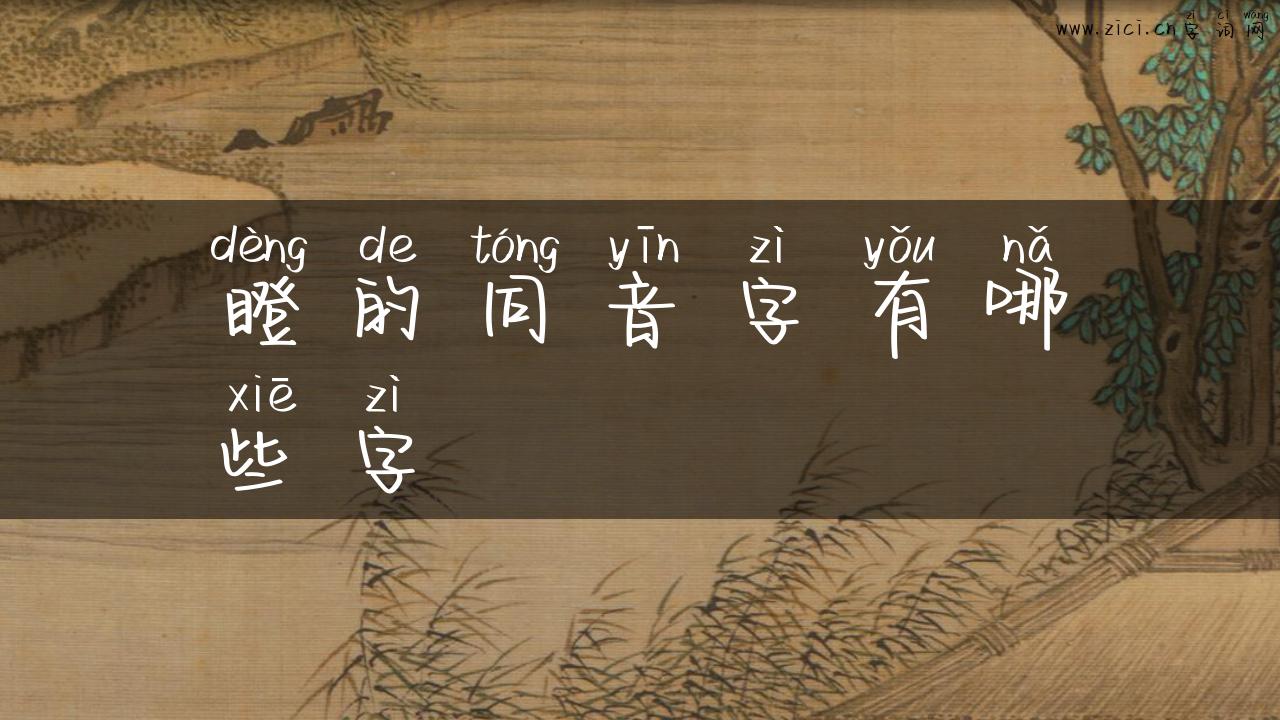 zì cí wǎng
www.zici.cn字词网
dèng de tóng yīn zì yǒu nǎ
瞪的同音字有哪
xiē zì
些字